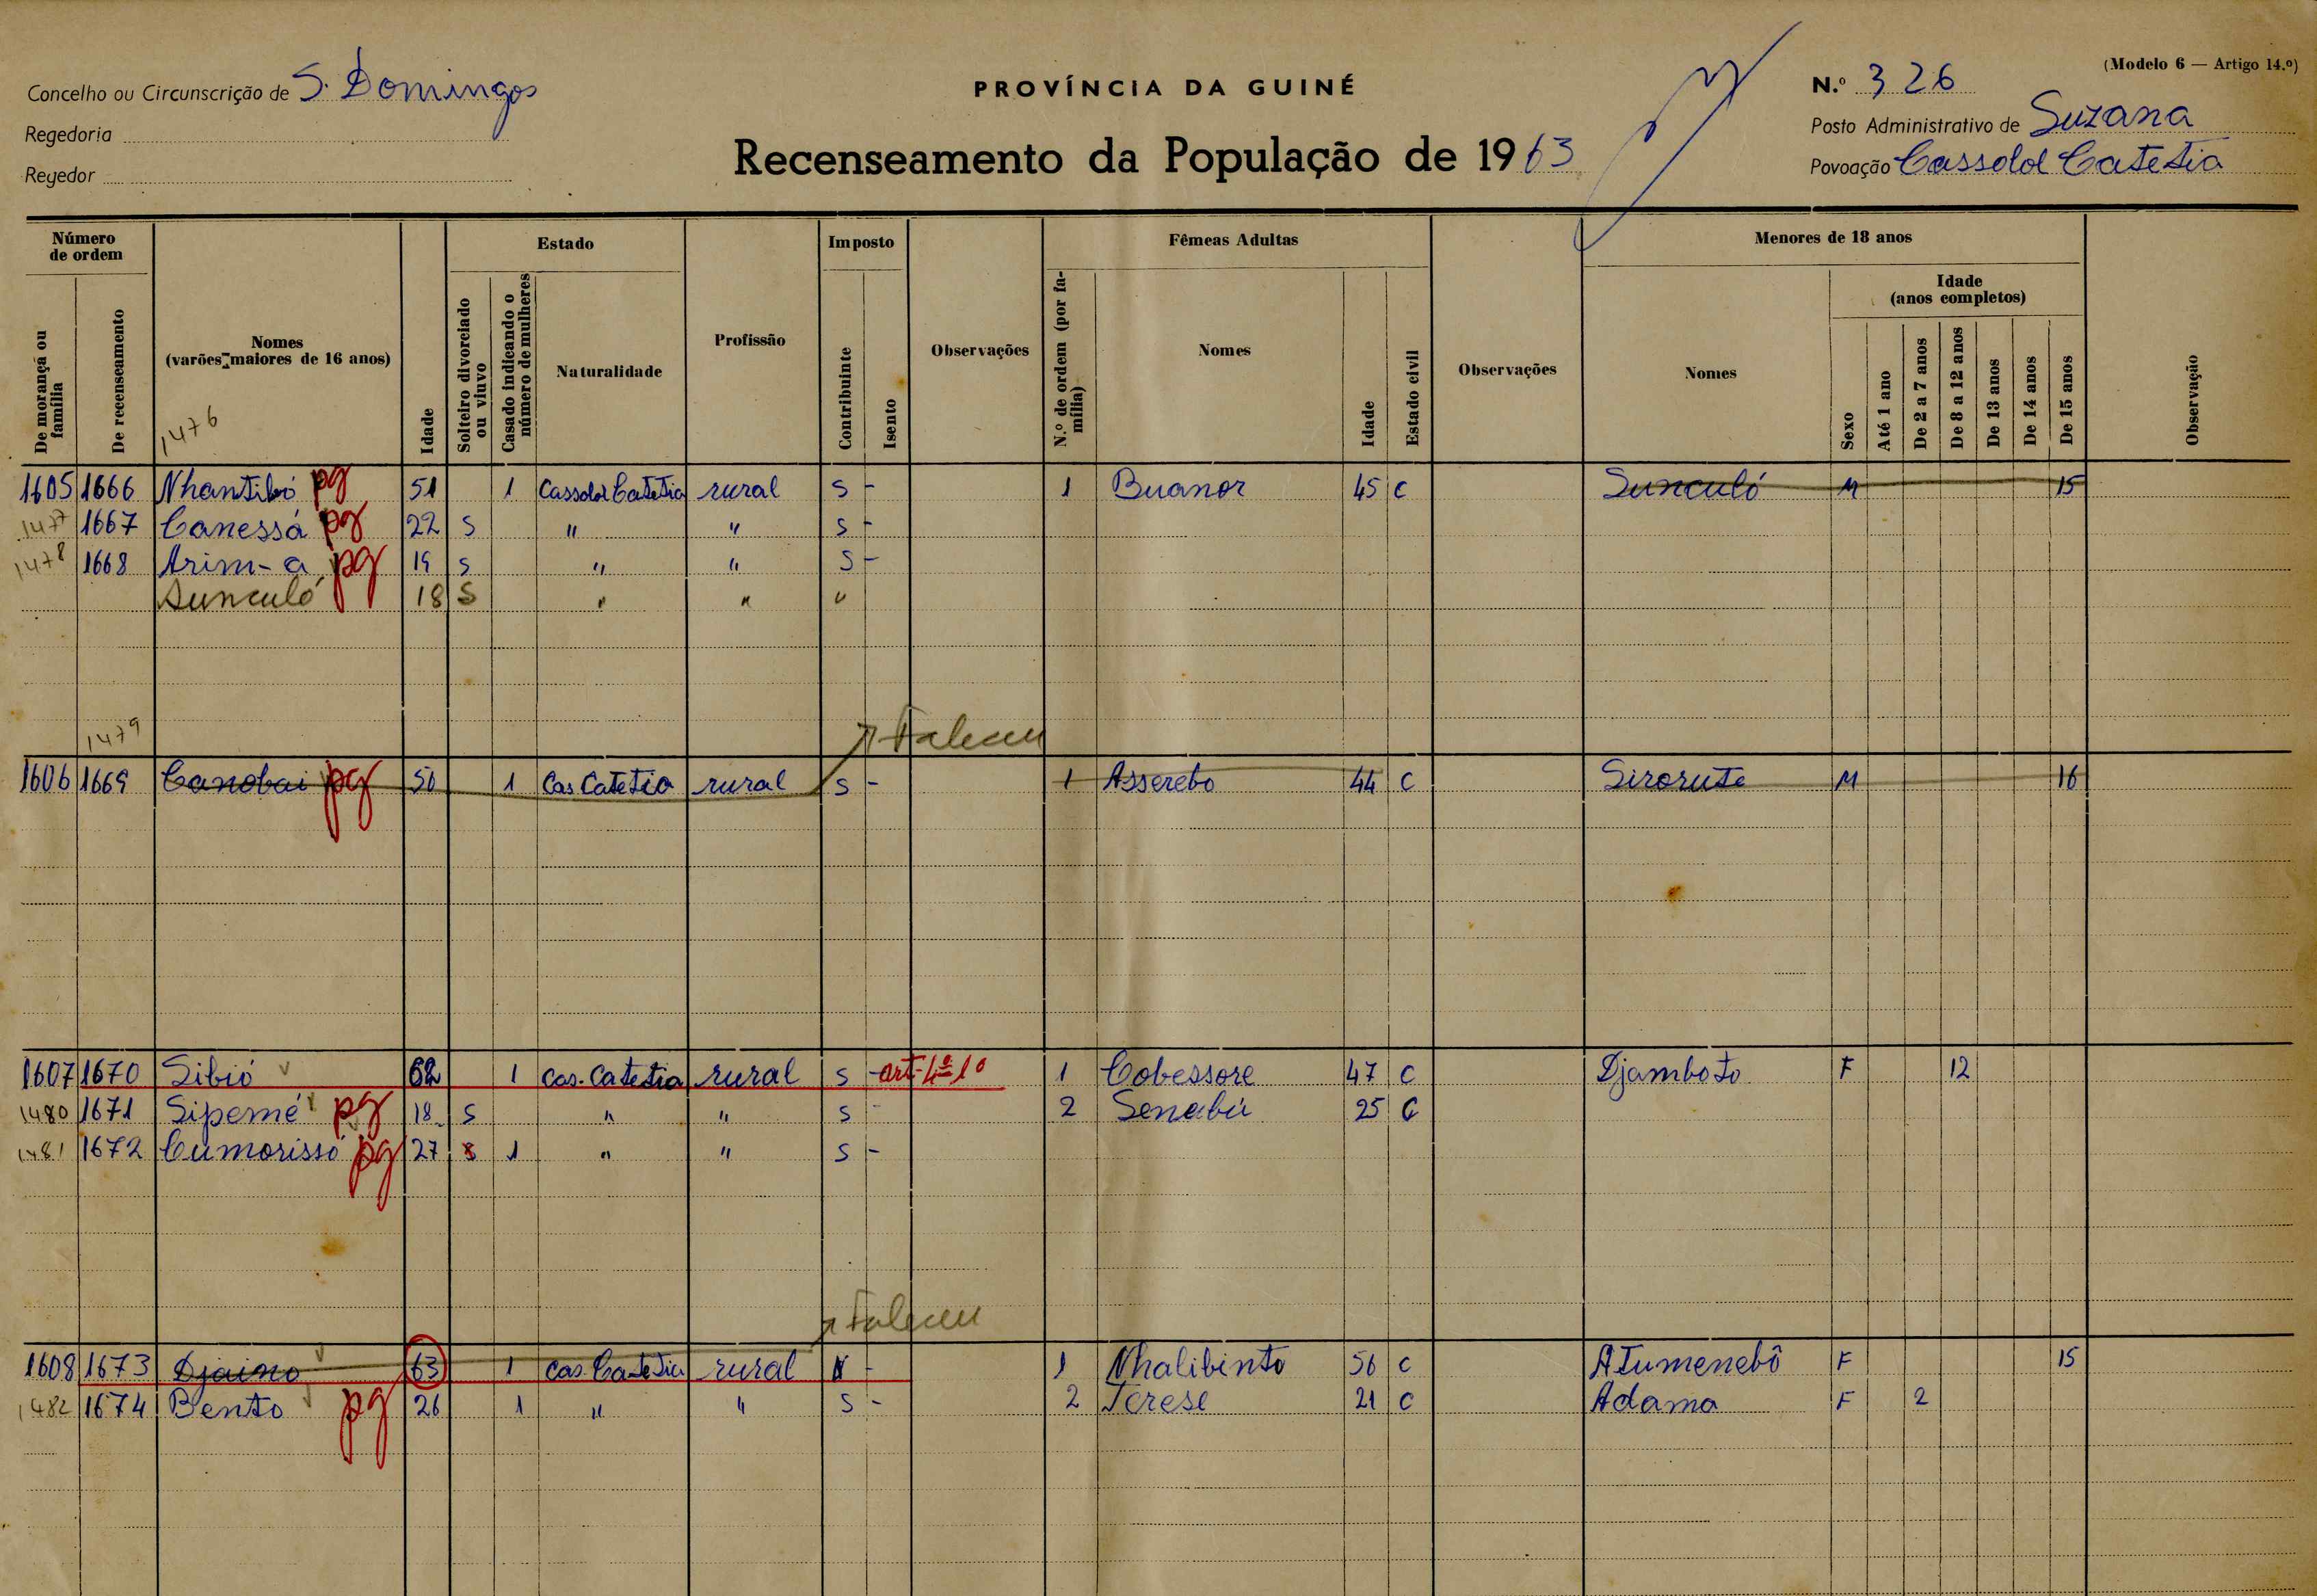 (Modelo 6 — Artigo 14.º)
Concelho ou Circunscrição de S. Domingos
PROVÍNCIA DA GUINÉ
N.º 326
Regedoria
Posto Administrativo de Suzana
Recenseamento da População de 1963
Reyedor
Povoação Cassolol Catetia
Número de ordem
Estado
Imposto
Fêmeas Adultas
Menores de 18 anos
Idade (anos completos)
De morança ou família
De recenseamento
Nomes (varões maiores de 16 anos)
Idade
Solteiro divorciado ou viuvo
Casado indicando o número de mulheres
Naturalidade
Profissão
Contribuinte
Isento
Observações
N.º de ordem (por família)
Nomes
Idade
Estado civil
Observações
Nomes
Sexo
Até 1 ano
De 2 a 7 anos
De 8 a 12 anos
De 13 anos
De 14 anos
De 15 anos
Observação
1476
1605 1666 Nhantibó pg 51 1 Cassolol Catetia rural S - 1 Buanor 45 C Sunculó M 15
1477 1667 Canessá pg 22 S " " S -
1478 1668 Arim-a pg 19 S " " S -
Sunculó 18 S " " "
1479
Faleceu
1606 1669 Canobai pg 50 1 Cas Catetia rural S - 1 Asserebo 44 C Sirorute M 16
1607 1670 Sibió 62 1 Cas. Catetia rural S - art-4º 1º 1 Cobessore 47 C Djamboto F 12
1480 1671 Sipemé pg 18 S " " S - 2 Senabú 25 C
1481 1672 Cumorissó pg 27 S 1 " " S -
Faleceu
1608 1673 Djaino 63 1 Cas. Catetia rural - 1 Nhalibinto 56 C Atumenebô F 15
1482 1674 Bento pg 26 1 " " S - 2 Terese 21 C Adama F 2